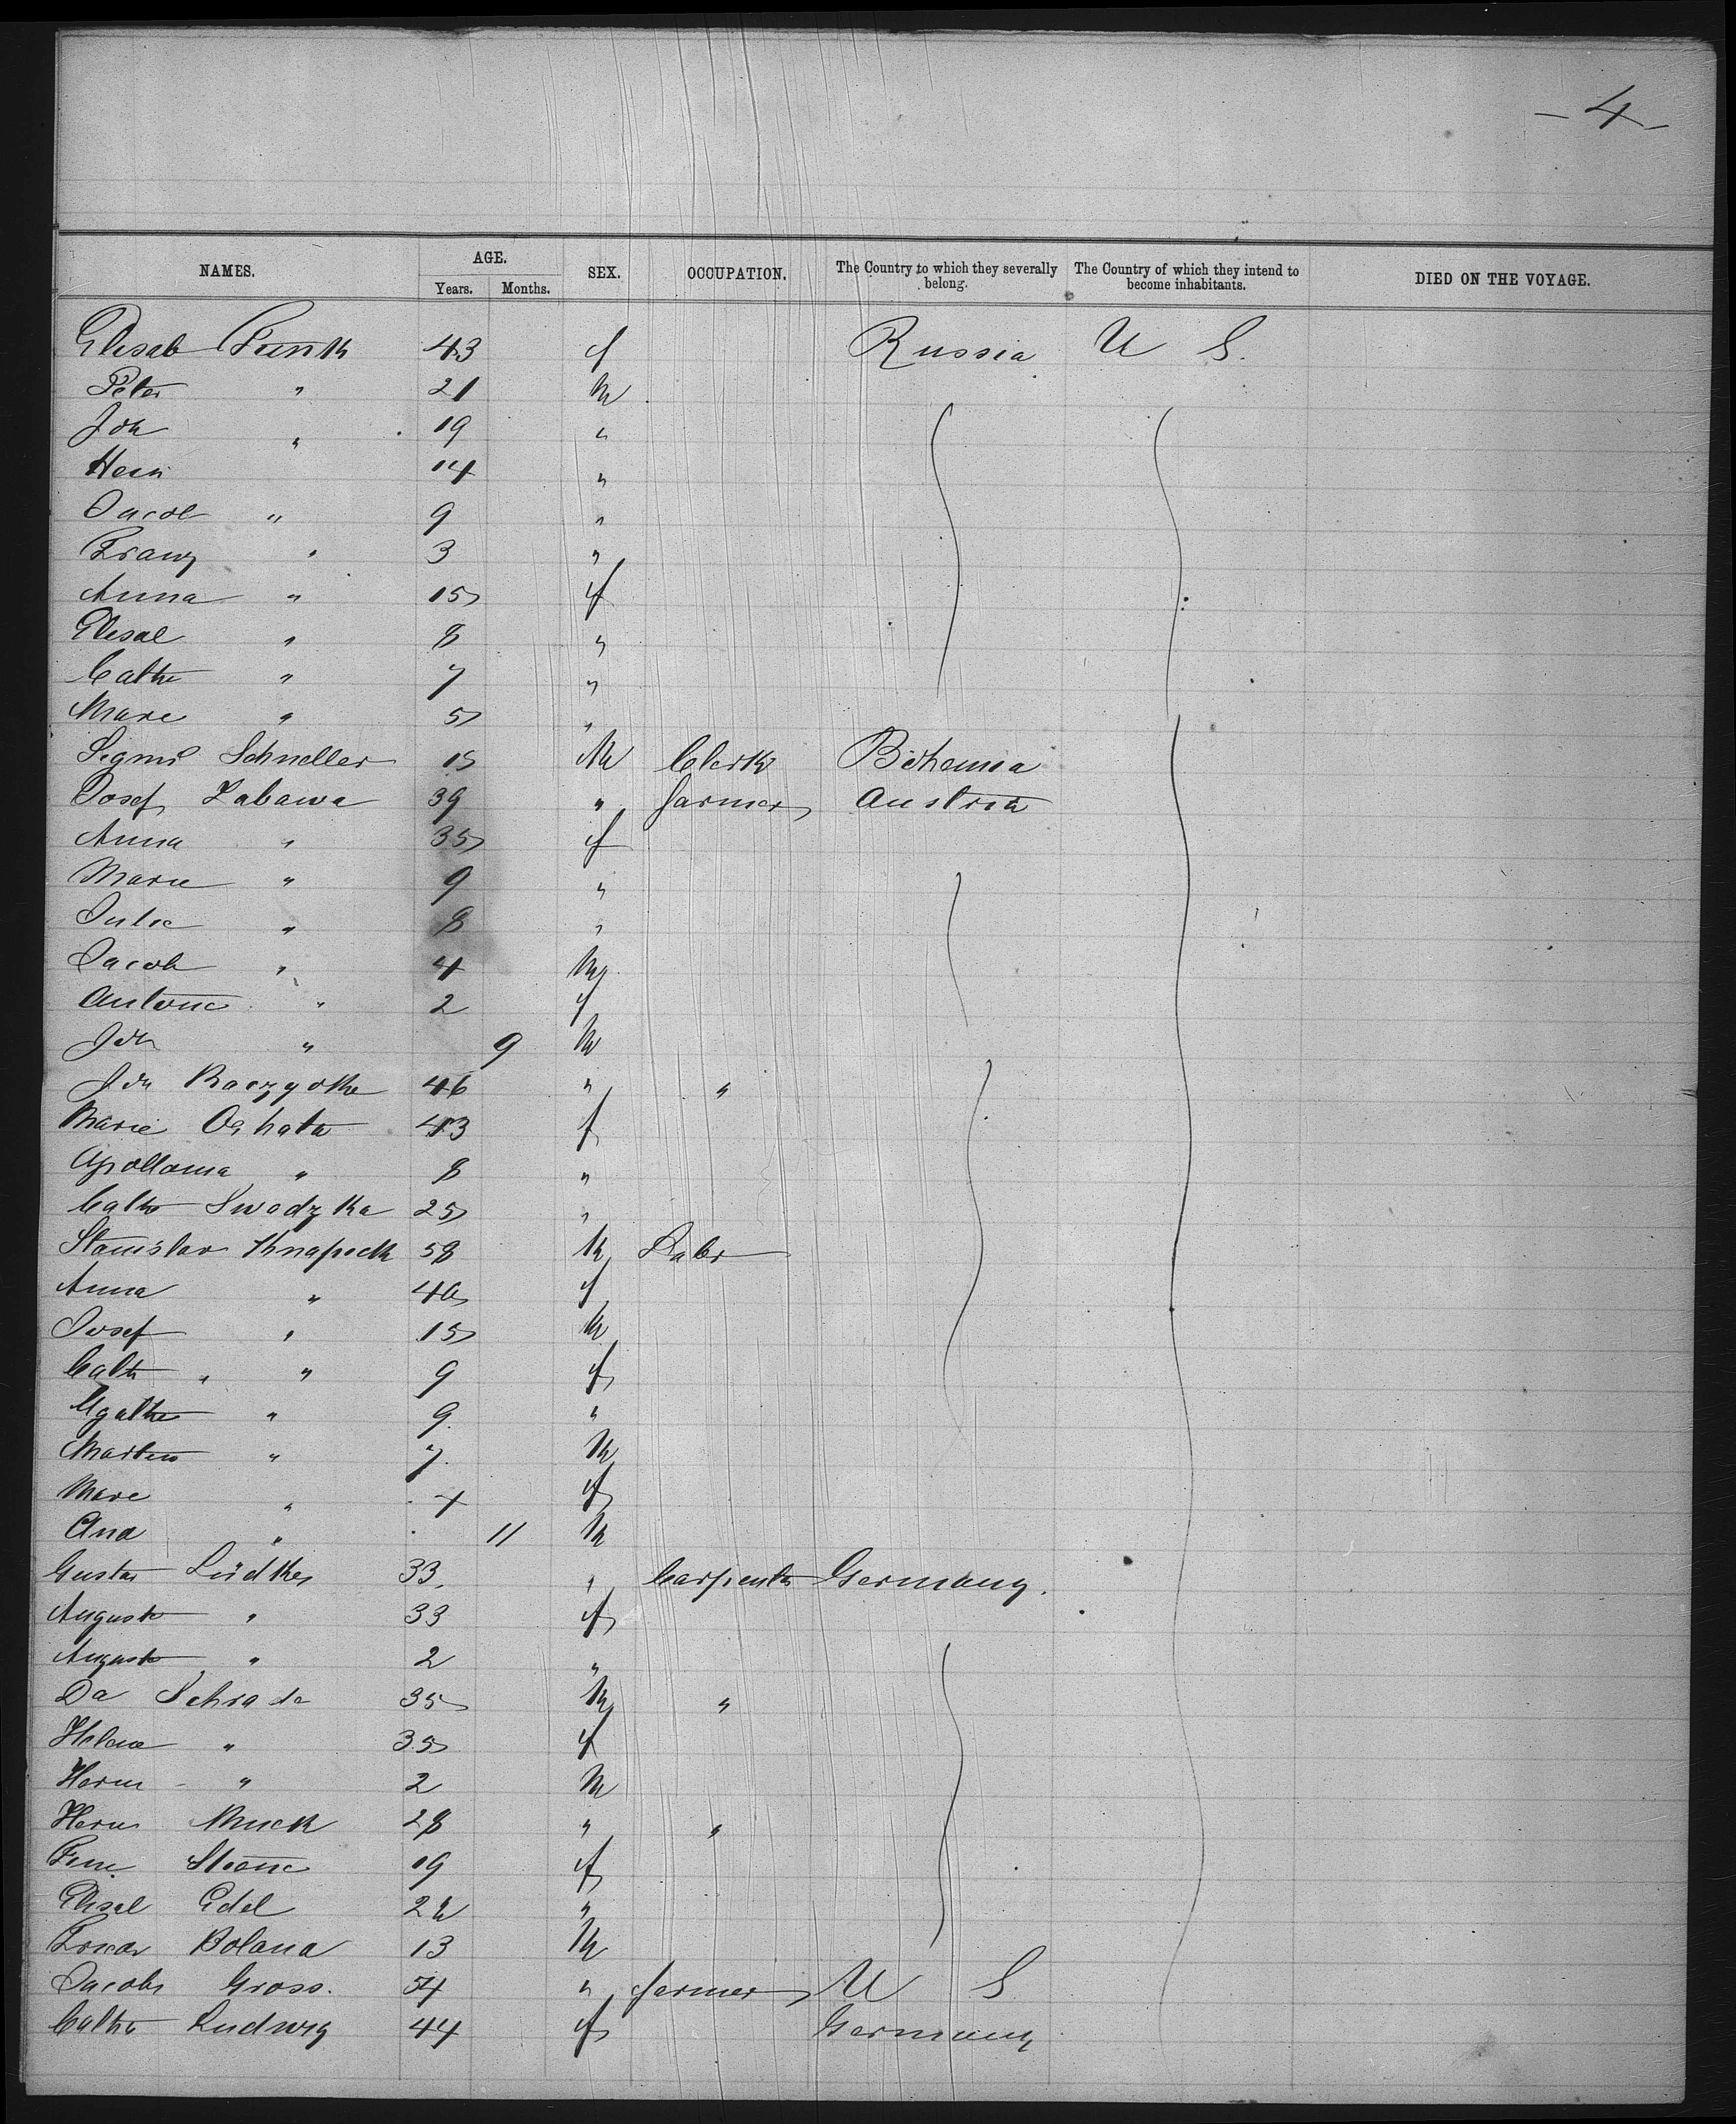 - 4 -
NAMES. AGE. SEX. OCCUPATION. The Country to which they severally belong. The Country of which they intend to become inhabitants. DIED ON THE VOYAGE.
Years. Months.
Elisab Funk 43 f Russia U S.
Peter " 21 M
Joh " 19 "
Hein 14 "
Jacob " 9 "
Franz " 3 "
Anna " 15 f
Elisab " 8 "
Cathe " 7 "
Marie " 5 "
Sigmd Schneller 15 M Clerk Bohemia
Josef Zabawa 39 " farmer Austria
Anna " 35 f
Marie " 9 "
Julie " 8 "
Jacob " 4 M
Antonie " 2 f
Joh " 9 M
Joh 46 " "
Marie 43 f
Apollonia " 8 "
Cathe Swodzka 25 "
Stanislav Knapeck 58 M Labr
Anna " 40 f
Josef " 15 M
Cath " " 9 f
Agathe " 9 "
Marten " 7 M
Marie " 4 f
And " 11 M
Gustav Lüdke 33 " Carpenter Germany.
Auguste " 33 f
Auguste " 2 "
Da Schrade 35 M "
Helene " 35 f
Herm " 2 M
Herm Muck 28 " "
19 f
Elisab Edel 22 "
Bolana 13 M
Jacob Gross. 54 " farmer U S
Cathe Ludwig 44 f Germany